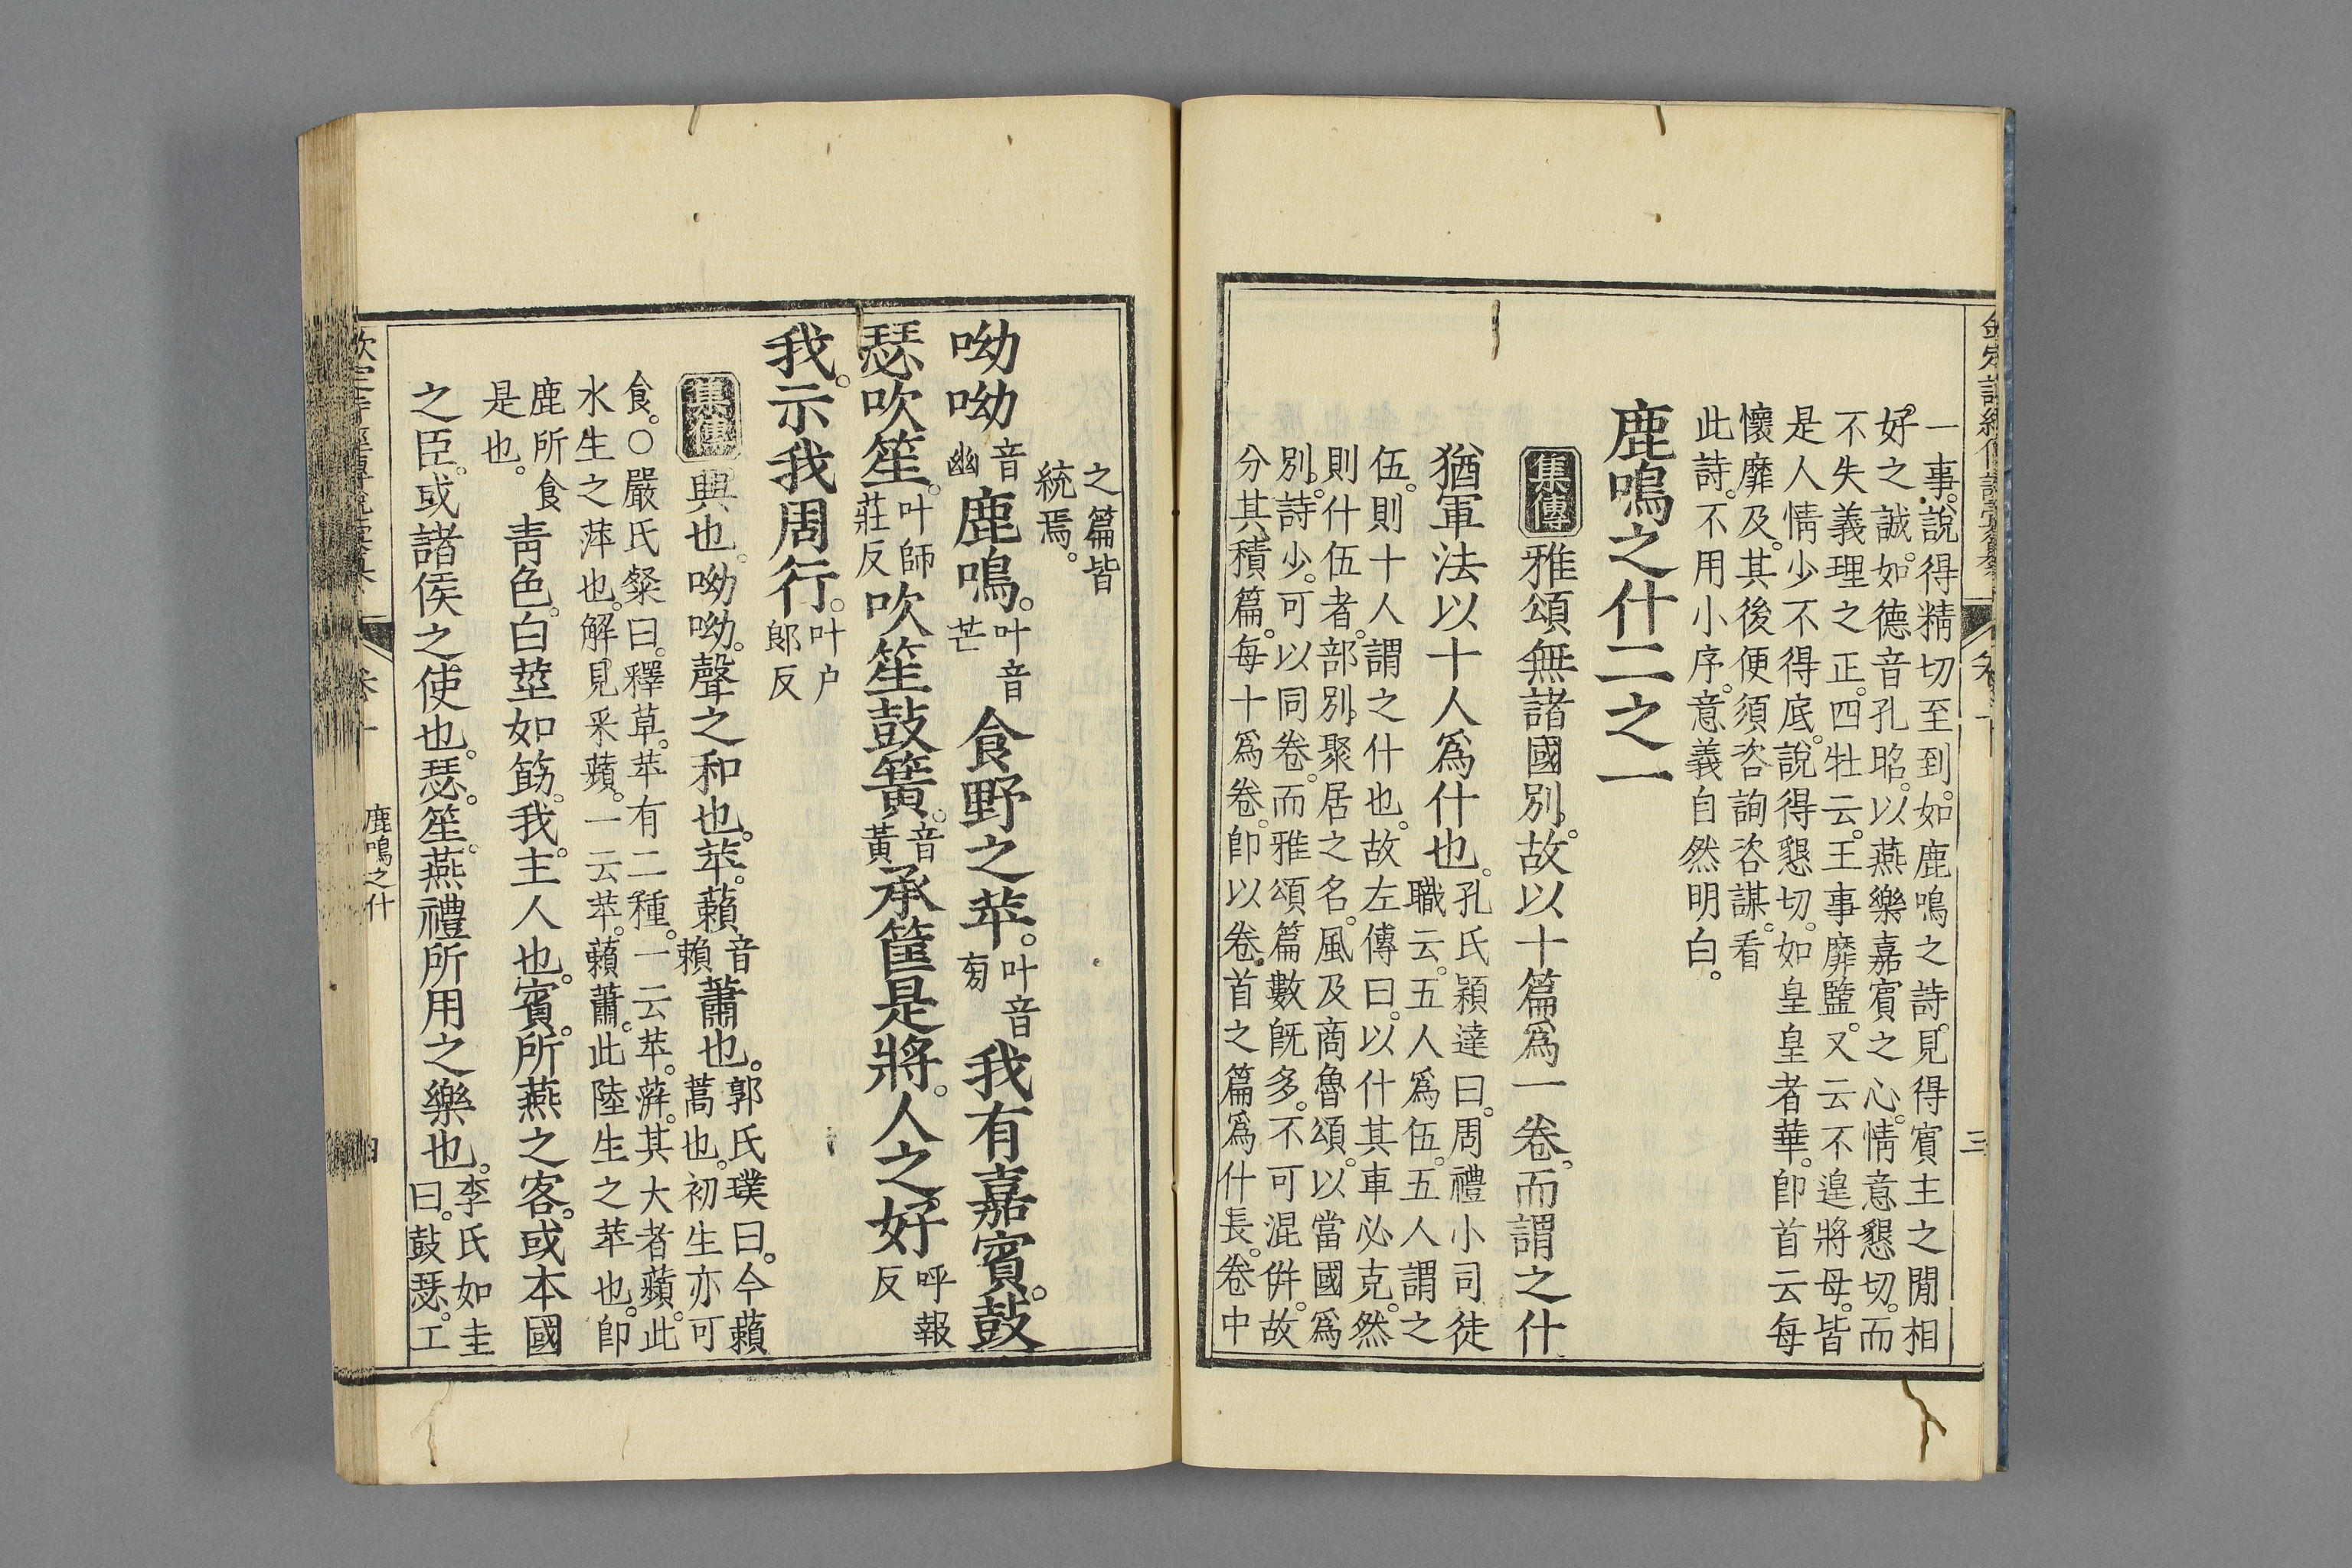 一事。說得精切至到。如鹿鳴之詩。見得賓主之閒相
好之誠。如德音孔昭。以燕樂嘉賓之心。情意懇切。而
不失義理之正。四牡云。王事靡盬。又云不遑將母。皆
是人情少不得底。說得懇切。如皇皇者華。卽首云每
懷靡及。其後便須咨詢咨謀。看
此詩。不用小序。意義自然明白。
鹿鳴之什二之一
集傳 雅頌無諸國別。故以十篇爲一卷。而謂之什
猶軍法以十人爲什也。孔氏穎達曰。周禮小司徒
職云。五人爲伍。五人謂之
伍。則十人謂之什也。故左傳曰。以什其車必克。然
則什伍者。部別聚居之名。風及商魯頌。以當國爲
別。詩少。可以同卷。而雅頌篇數旣多。不可混倂。故
分其積篇。每十爲卷。卽以卷首之篇爲什長。卷中
之篇皆
統焉。
呦呦音幽鹿鳴。叶音芒食野之苹。叶音㫄我有嘉賓。鼓
瑟吹笙。叶師莊反吹笙鼓簧。音黃承筐是將。人之好呼報反
我。示我周行。叶戶郞反
集傳 興也。呦呦。聲之和也。苹。藾音賴蕭也。郭氏璞曰。今藾
蒿也。初生亦可
食。〇嚴氏粲曰。釋草。苹有二種。一云苹。蓱。其大者蘋。此
水生之萍也。解見采蘋。一云苹。藾蕭。此陸生之苹也。卽
鹿所食
是也。
靑色。白莖如筯。我。主人也。賓。所燕之客。或本國
之臣。或諸侯之使也。瑟。笙。燕禮所用之樂也。李氏如圭
曰。鼓瑟。工
鹿鳴之什